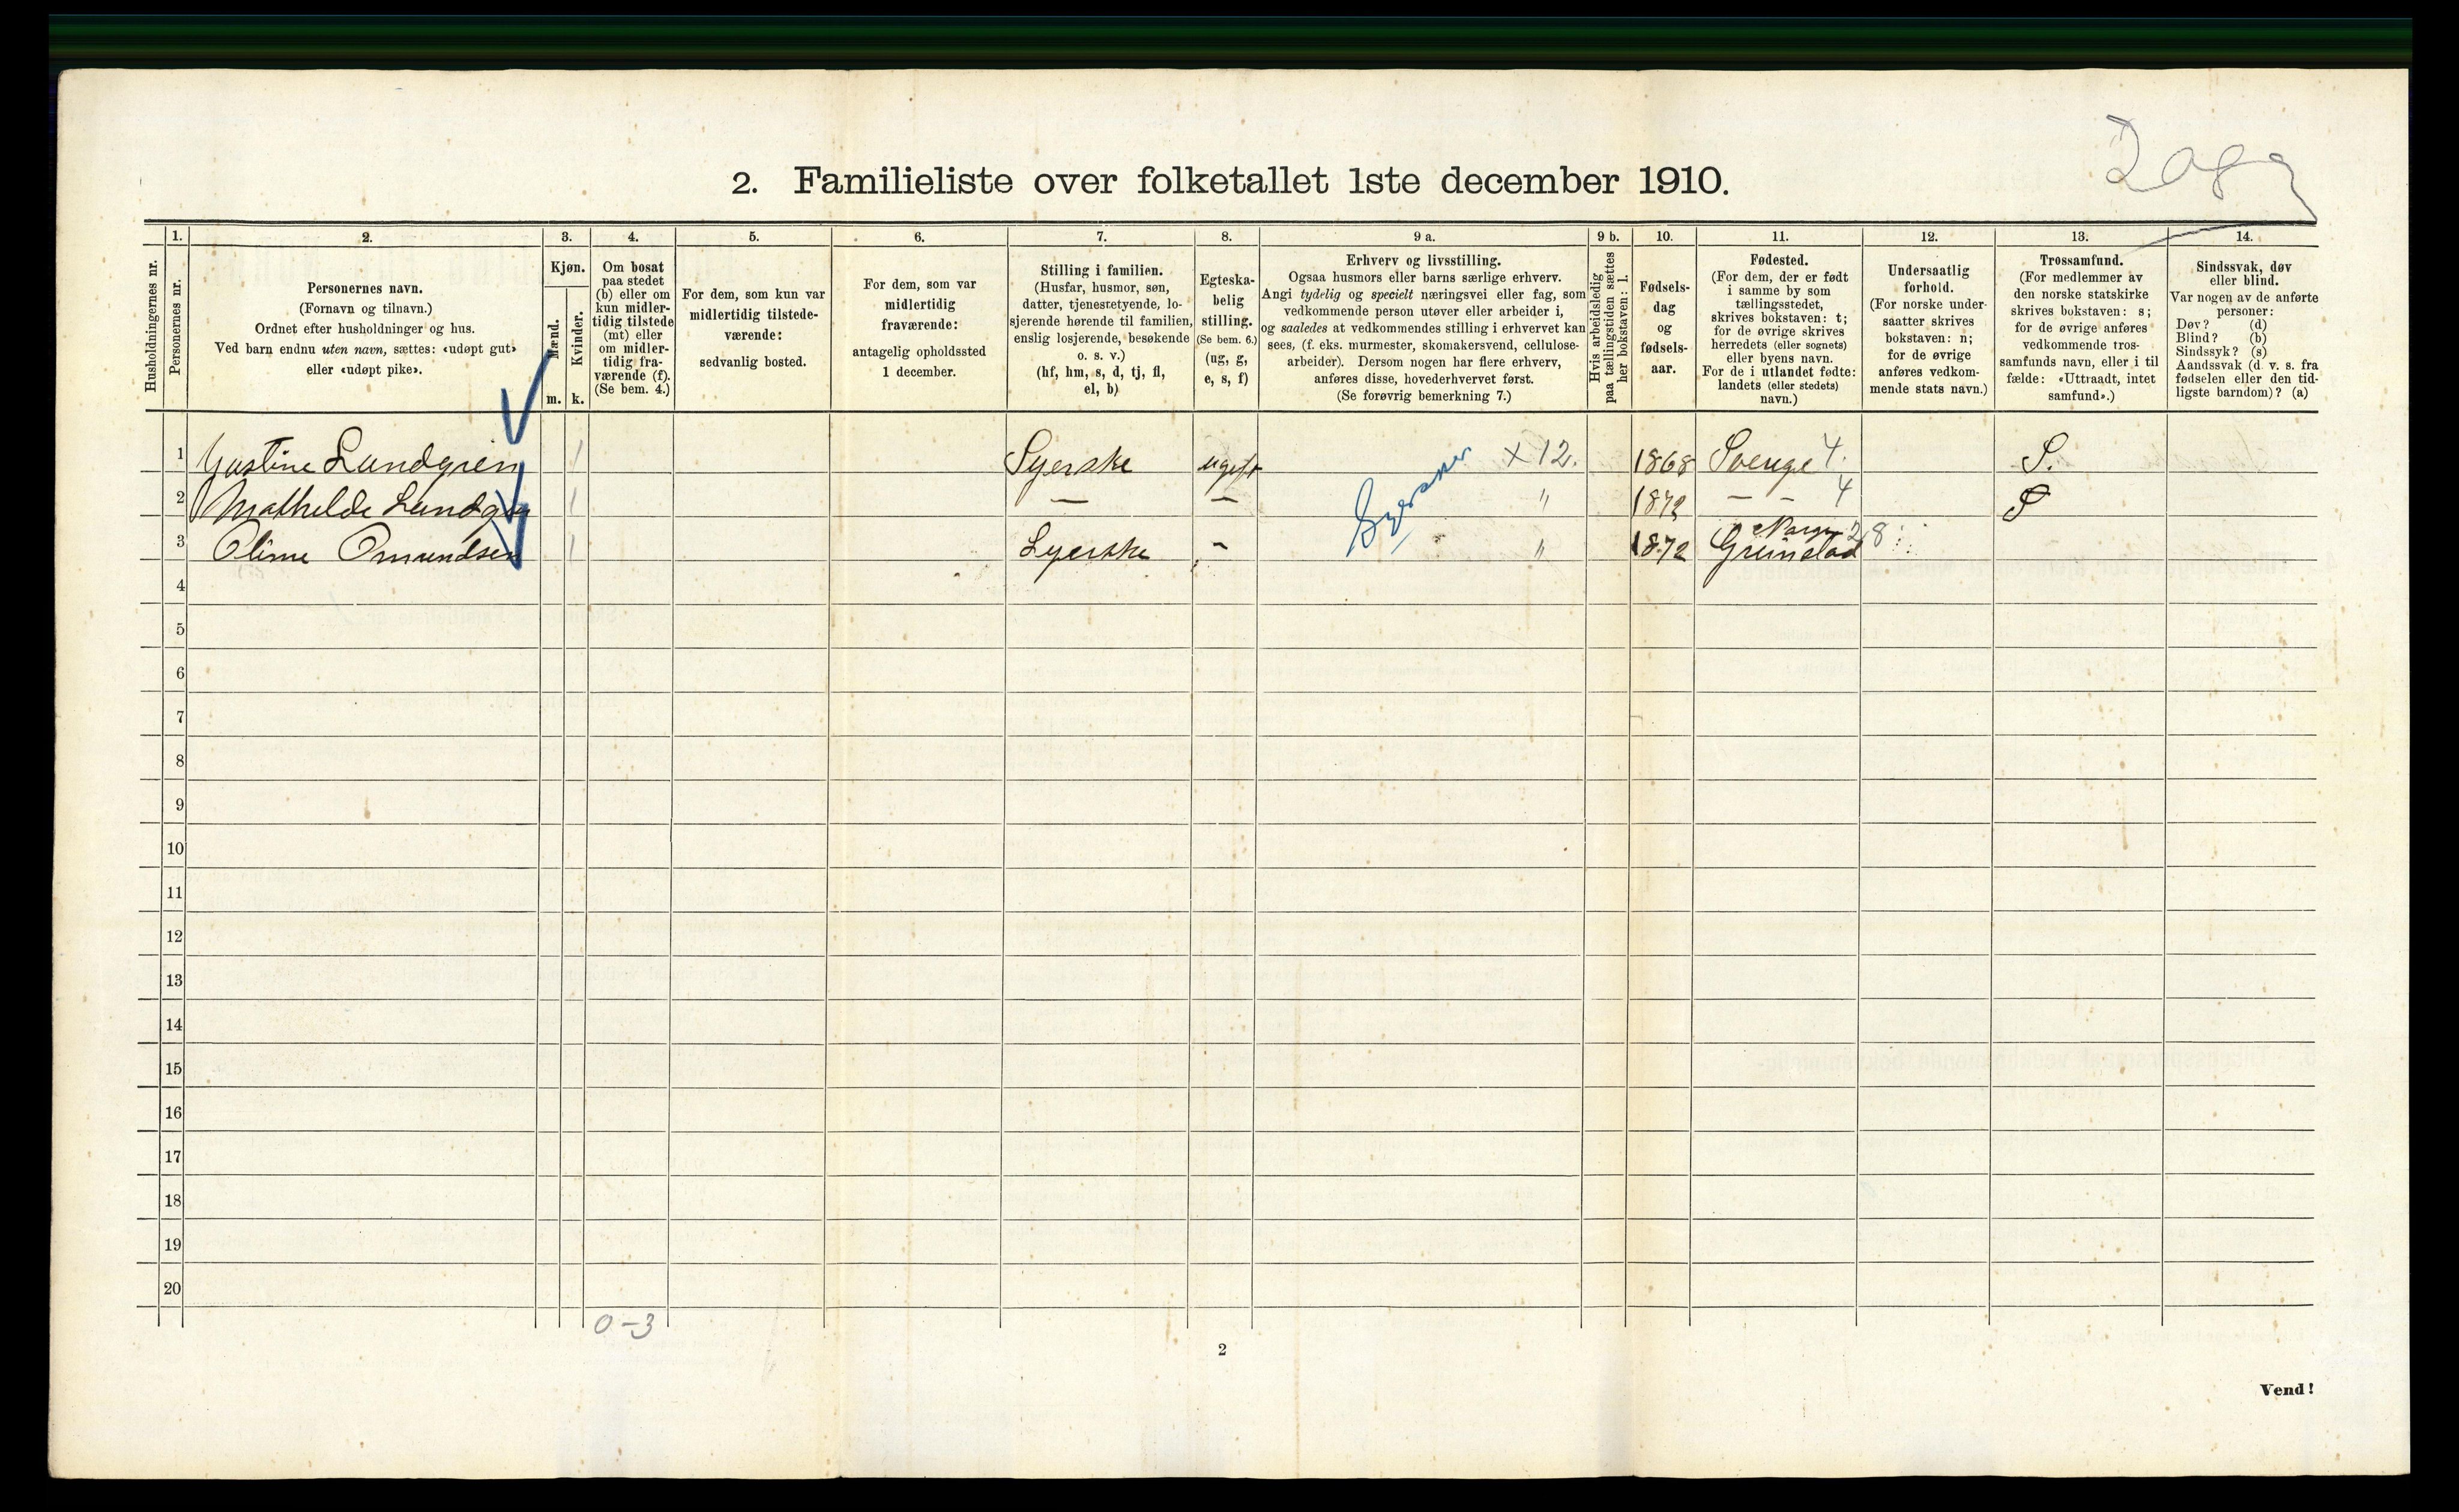 2. Familieliste over folketallet 1ste december 1910.
Husholdningernes nr.
1.
Personernes nr.
2.
Personernes navn.
(Fornavn og tilnavn.)
Ordnet efter husholdninger og hus.
Ved barn endnu uten navn, sættes: «udøpt gut»
eller «udøpt pike».
3.
Kjøn.
Mænd.
Kvinder.
m. k.
4.
Om bosat
paa stedet
(b) eller om
kun midler-
tidig tilstede
(mt) eller
om midler-
tidig fra-
værende (f).
(Se bem. 4.)
5.
For dem, som kun var
midlertidig tilstede-
værende:
sedvanlig bosted.
6.
For dem, som var
midlertidig
fraværende:
antagelig opholdssted
1 december.
7.
Stilling i familien.
(Husfar, husmor, søn,
datter, tjenestetyende, lo-
sjerende hørende til familien,
enslig losjerende, besøkende
o. s. v.)
(hf, hm, s, d, tj, fl,
el, b)
8.
Egteska-
belig
stilling.
(Se bem. 6.)
(ug, g,
e, s, f)
9 a.
Erhverv og livsstilling.
Ogsaa husmors eller barns særlige erhverv.
Angi tydelig og specielt næringsvei eller fag, som
vedkommende person utøver eller arbeider i,
og saaledes at vedkommendes stilling i erhvervet kan
sees, (f. eks. murmester, skomakersvend, cellulose-
arbeider). Dersom nogen har flere erhverv,
anføres disse, hovederhvervet først.
(Se forøvrig bemerkning 7.)
9 b.
Hvis arbeidsledig
paa tællingstiden sættes
her bokstaven: l.
10.
Fødsels-
dag
og
fødsels-
aar.
11.
Fødested.
(For dem, der er født
i samme by som
tællingsstedet,
skrives bokstaven: t;
for de øvrige skrives
herredets (eller sognets)
eller byens navn.
For de i utlandet fødte:
landets (eller stedets)
navn.)
12.
Undersaatlig
forhold.
(For norske under-
saatter skrives
bokstaven: n;
for de øvrige
anføres vedkom-
mende stats navn.)
13.
Trossamfund.
(For medlemmer av
den norske statskirke
skrives bokstaven: s;
for de øvrige anføres
vedkommende tros-
samfunds navn, eller i til
fælde: «Uttraadt, intet
samfund».)
14.
Sindssvak, døv
eller blind.
Var nogen av de anførte
personer:
Døv? (d)
Blind? (b)
Sindssyk? (s)
Aandssvak (d. v. s. fra
fødselen eller den tid-
ligste barndom)? (a)
1 Gustine Lundgren 1 Syerske ugift Syersker X 12. 1868 Sverige 4. S.
2 Mathilde Lundgren 1 — — " 1872 — — 4 S
3 Oline Omundsen 1 Syerske - " 1872 Norge Grimstad 28
4
5
6
7
8
9
10
11
12
13
14
15
16
17
18
19
20
0-3
2
Vend!